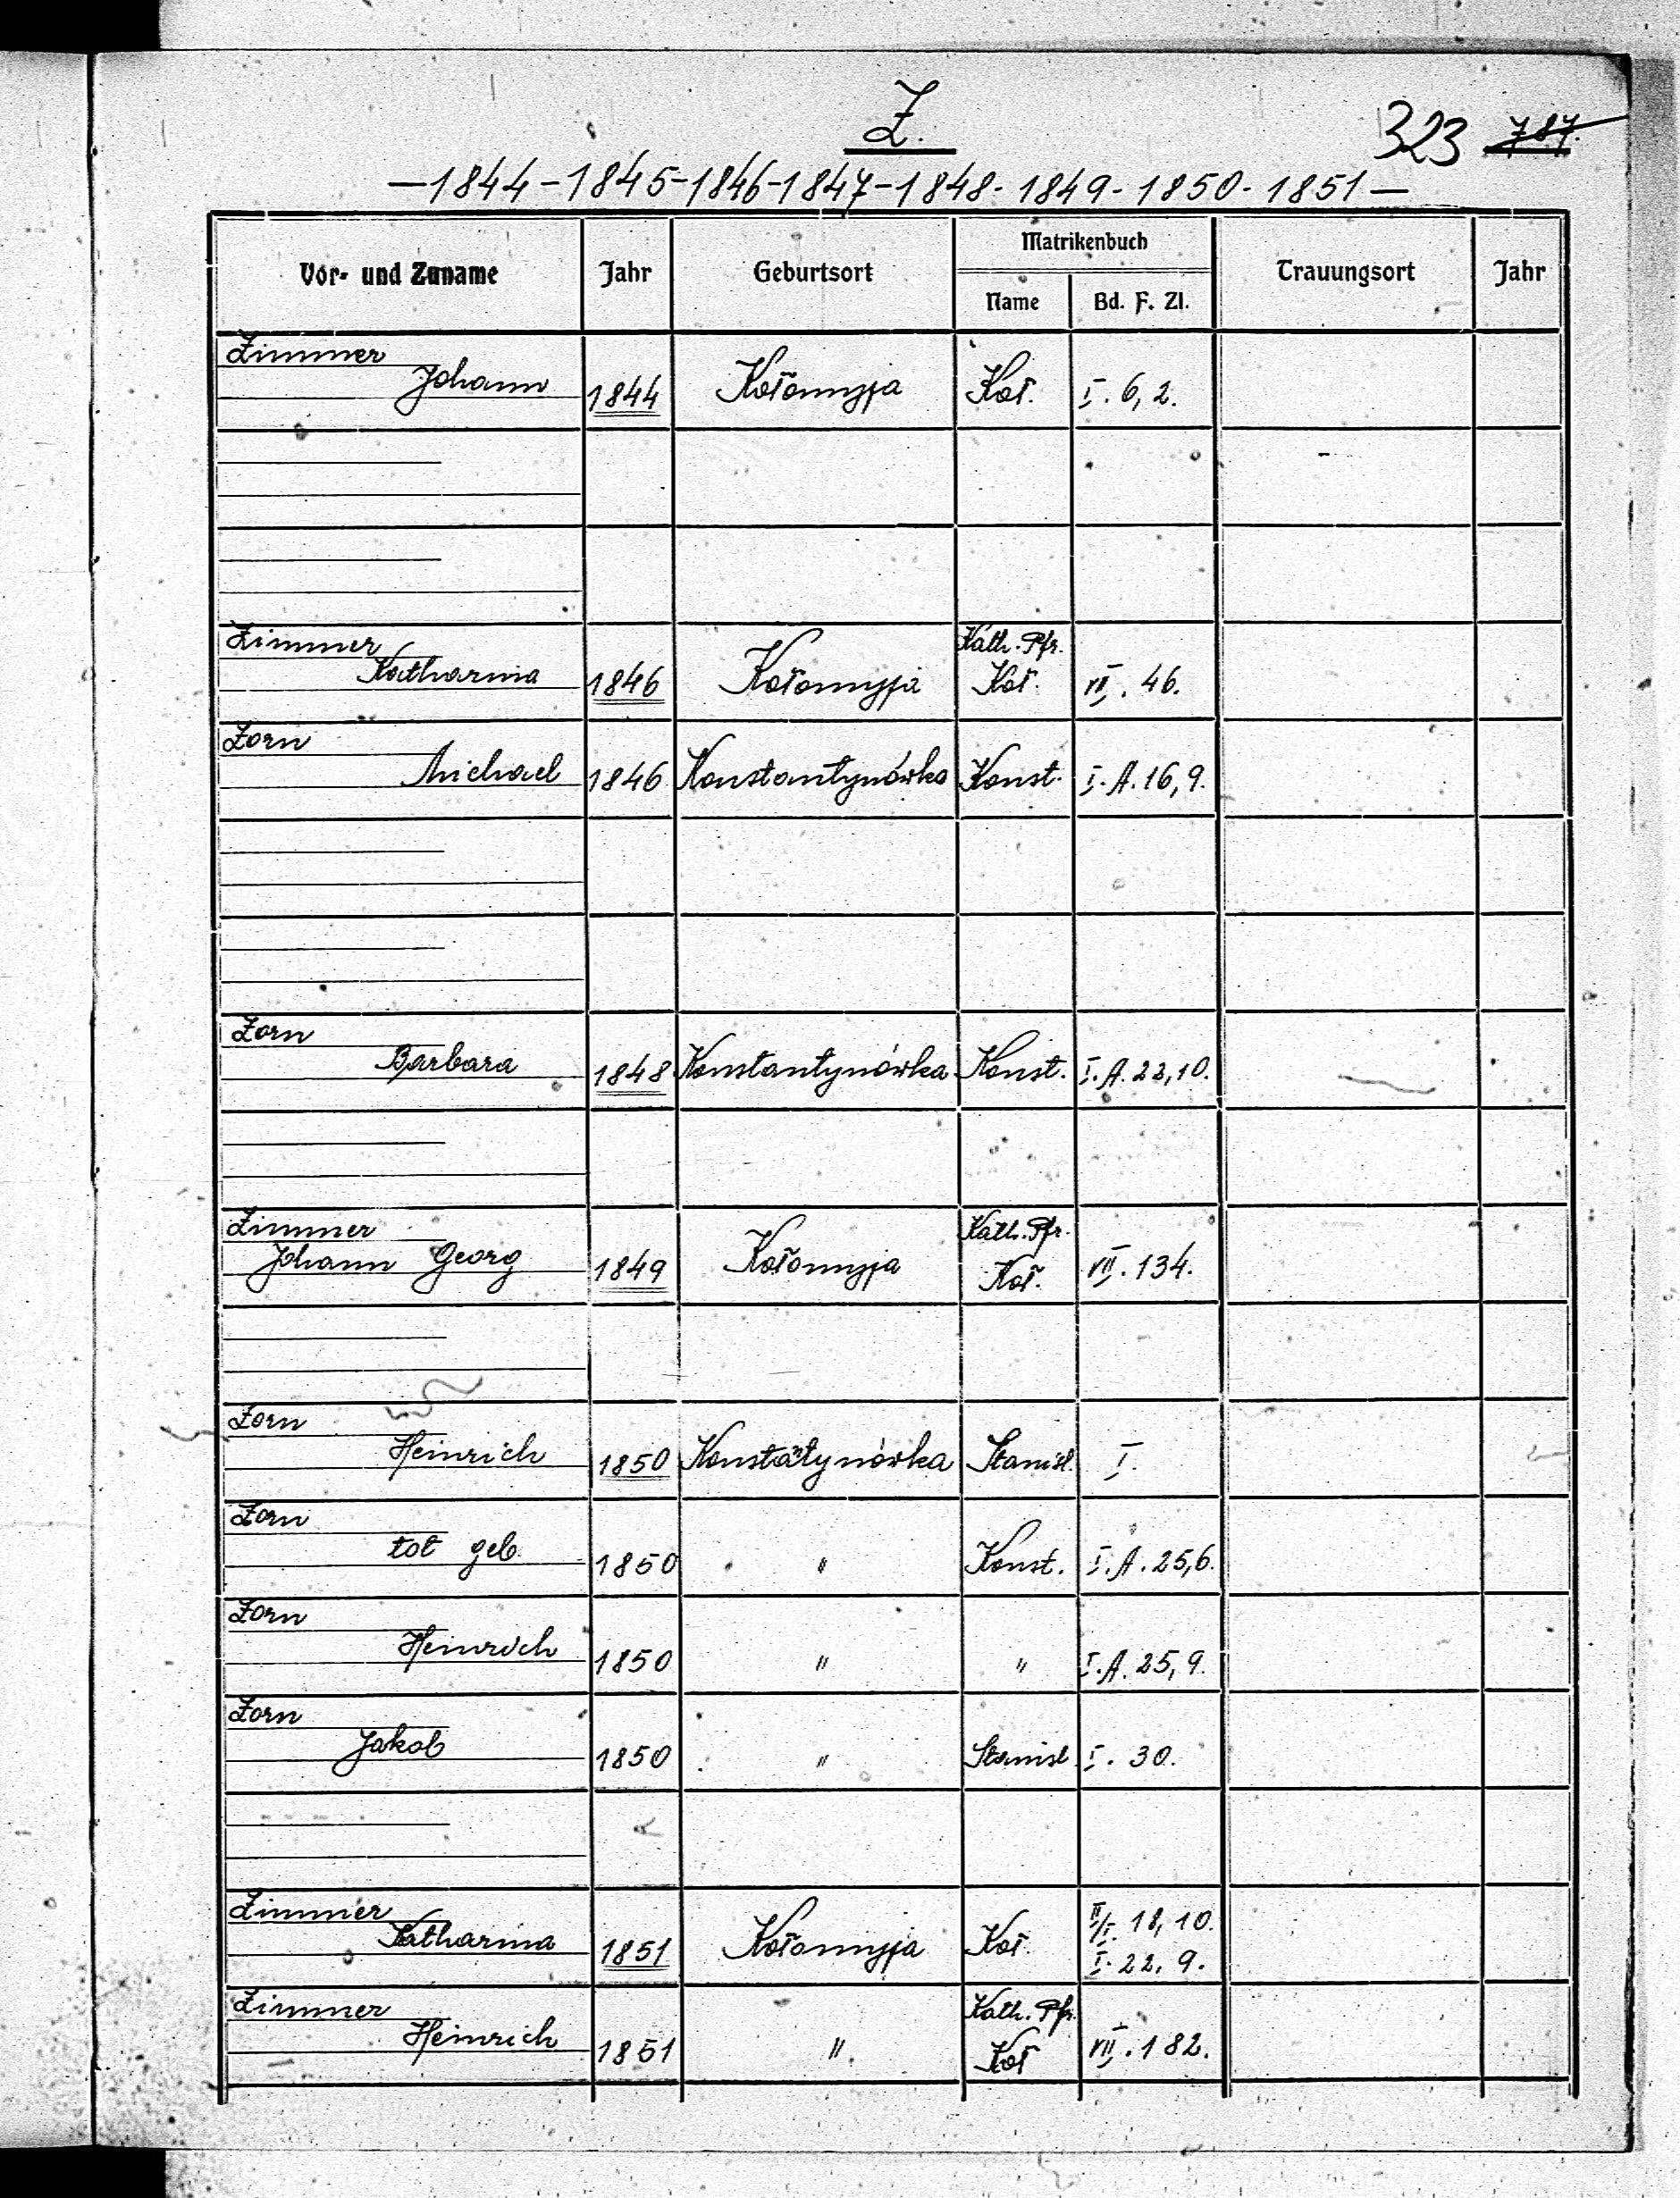 Z.
323 787.
—1844-1845-1846-1847-1848-1849-1850-1851—
Vor- und Zuname Jahr Geburtsort Matrikenbuch Trauungsort Jahr
Name Bd. F. Zl.
Zimmer
Johann 1844 Kołomyja Koł. I. 6, 2.
Zimmer Kath. Pfr.
Katharina 1846 Kołomyja Koł. VII. 46.
Zorn
Michael 1846 Konstantynówka Konst. I. A. 16, 9.
Zorn
Barbara 1848 Konstantynówka Konst. I. A. 22, 10.
Zimmer Kath. Pfr.
Johann Georg 1849 Kołomyja Koł. VII. 134.
Zorn
Heinrich 1850 Konstatynówka Stanisl. I.
Zorn
tot geb. 1850 " Konst. I. A. 25, 6.
Zorn
Heinrich 1850 " " I. A. 25, 9.
Zorn
Jakob 1850 " Stanisl I. 30.
Zimmer II/I. 18, 10.
Katharina 1851 Kołomyja Koł. I. 22, 9.
Zimmer Kath. Pfr.
Heinrich 1851 " Koł VII. 182.